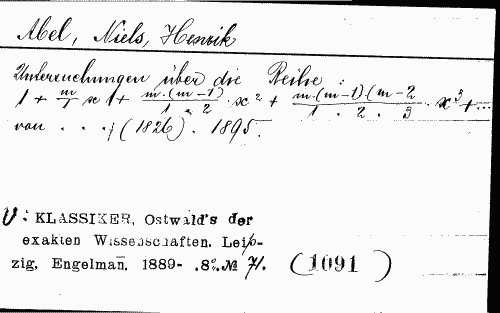 Abel, Niels, Henrik
Untersuchungen über die Reihe:
1 + m/1 x + m.(m-1)/1.2 . x² + m.(m-1).(m-2/1.2.3 . x³+...
von . . . ; (1826). 1895.
V: KLASSIKER, Ostwald's der
exakten Wissenschaften. Leip-
zig, Engelman̄. 1889- .8°. № 71.
(1091)